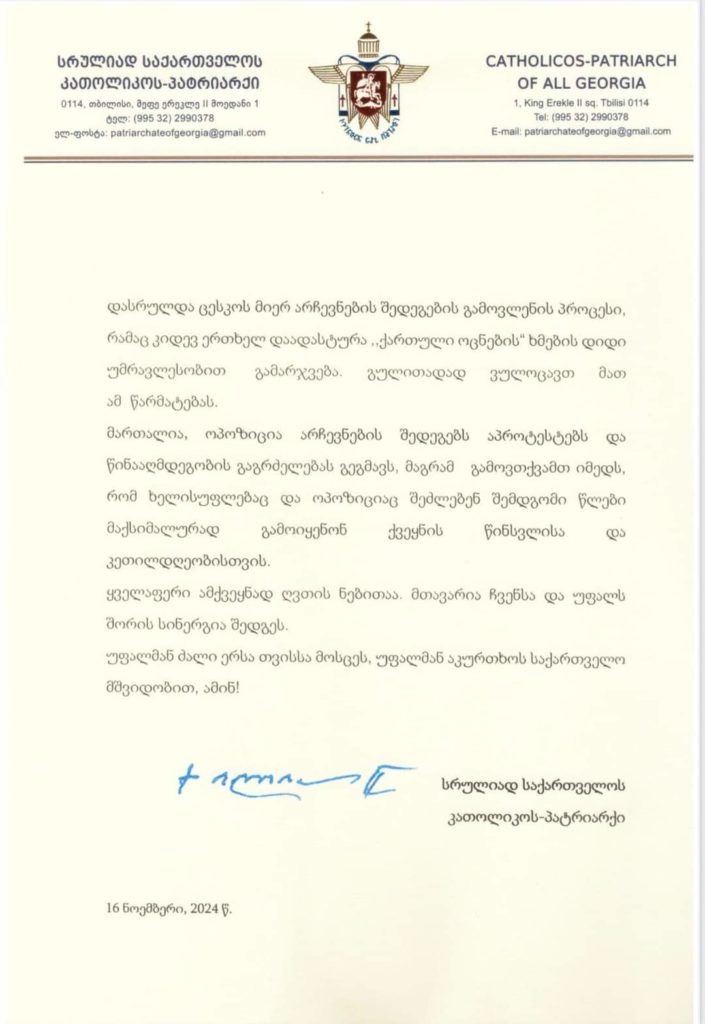 სრულიად საქართველოს
კათოლიკოს-პატრიარქი
0114, თბილისი, მეფე ერეკლე II მოედანი 1
ტელ: (995 32) 2990378
ელ-ფოსტა: patriarchateofgeorgia@gmail.com
CATHOLICOS-PATRIARCH
OF ALL GEORGIA
1, King Erekle II sq. Tbilisi 0114
Tel: (995 32) 2990378
E-mail: patriarchateofgeorgia@gmail.com
დასრულდა ცესკოს მიერ არჩევნების შედეგების გამოვლენის პროცესი,
რამაც კიდევ ერთხელ დაადასტურა ,,ქართული ოცნების“ ხმების დიდი
უმრავლესობით გამარჯვება. გულითადად ვულოცავთ მათ
ამ წარმატებას.
მართალია, ოპოზიცია არჩევნების შედეგებს აპროტესტებს და
წინააღმდეგობის გაგრძელებას გეგმავს, მაგრამ გამოვთქვამთ იმედს,
რომ ხელისუფლებაც და ოპოზიციაც შეძლებენ შემდგომი წლები
მაქსიმალურად გამოიყენონ ქვეყნის წინსვლისა და
კეთილდღეობისთვის.
ყველაფერი ამქვეყნად ღვთის ნებითაა. მთავარია ჩვენსა და უფალს
შორის სინერგია შედგეს.
უფალმან ძალი ერსა თვისსა მოსცეს, უფალმან აკურთხოს საქართველო
მშვიდობით, ამინ!
სრულიად საქართველოს
კათოლიკოს-პატრიარქი
16 ნოემბერი, 2024 წ.